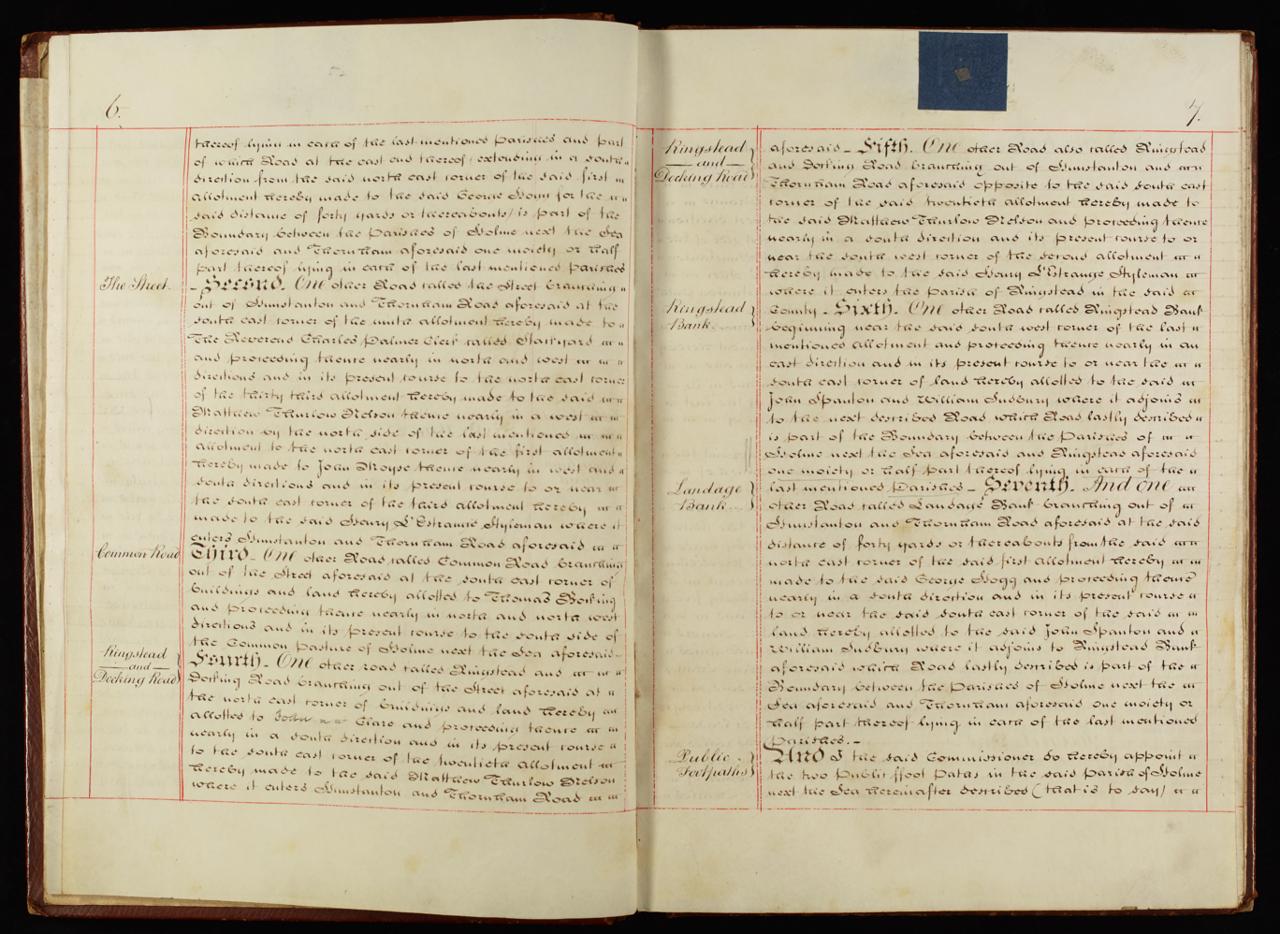 6.
thereof lying in each of the last mentioned Parishes and part
of which Road at the east end thereof (extending in a south
direction from the said north east corner of the said first
allotment hereby made to the said George Hogg for the
said distance of forty yards or thereabouts) is part of the
Boundary between the Parishes of Holme next the Sea
aforesaid and Thornham aforesaid one moiety or half
part thereof lying in each of the last mentioned Parishes
The Street.
– Second. One other Road called the Street branching
out of Hunstanton and Thornham Road aforesaid at the
south east corner of the ninth allotment hereby made to
The Reverend Charles Palmer Clerk called Stackyard
and proceeding thence nearly in north and west
directions and in its present course to the north east corner
of the thirty third allotment hereby made to the said
Matthew Thurlow Nelson thence nearly in a west
direction by the north side of the last mentioned
allotment to the north east corner of the first allotment
hereby made to John Moyse thence nearly in west and
south directions and in its present course to or near
the south east corner of the third allotment hereby
made to the said Henry L'Estrange Styleman where it
enters Hunstanton and Thornham Road aforesaid
Common Road
Third – One other Road called Common Road branching
out of the Street aforesaid at the south east corner of
buildings and land hereby allotted to Thomas Bocking
and proceeding thence nearly in north and north west
directions and in its present course to the south side of
the Common Pasture of Holme next the Sea aforesaid –
Ringstead
and
Docking Road
Fourth – One other road called Ringstead and
Docking Road branching out of the Street aforesaid at
the north east corner of buildings and land hereby
allotted to John Clare and proceeding thence
nearly in a south direction and in its present course
to the south east corner of the twentieth allotment
hereby made to the said Matthew Thurlow Nelson
where it enters Hunstanton and Thornham Road
7.
Ringstead
and
Docking Road
aforesaid – Fifth. One other Road also called Ringstead
and Docking Road branching out of Hunstanton and
Thornham Road aforesaid opposite to the said south east
corner of the said twentieth allotment hereby made to
the said Matthew Thurlow Nelson and proceeding thence
nearly in a south direction and its present course to or
near the south west corner of the second allotment
hereby made to the said Henry L'Estrange Styleman
where it enters the Parish of Ringstead in the said
Ringstead
Bank
County – Sixth. One other Road called Ringstead Bank
beginning near the said south west corner of the last
mentioned allotment and proceeding thence nearly in an
east direction and in its present course to or near the
south east corner of land hereby allotted to the said
John Spanton and William Sudbury where it adjoins
to the next described Road which Road lastly described
is part of the Boundary between the Parishes of
Holme next the Sea aforesaid and Ringstead aforesaid
one moiety or half part thereof lying in each of the
Landage
Bank
last mentioned Parishes – Seventh. And one
other Road called Landage Bank branching out of
Hunstanton and Thornham Road aforesaid at the said
distance of forty yards or thereabouts from the said
north east corner of the said first allotment hereby
made to the said George Hogg and proceeding thence
nearly in a south direction and in its present course
to or near the said south east corner of the said
land hereby allotted to the said John Spanton and
William Sudbury where it adjoins to Ringstead Bank
aforesaid which Road lastly described is part of the
Boundary between the Parishes of Holme next the
Sea aforesaid and Thornham aforesaid one moiety or
half part thereof lying in each of the last mentioned
Parishes. –
Public
Footpaths
And I the said Commissioner do hereby appoint
the two Public ffoot Paths in the said Parish of Holme
next the Sea hereinafter described (that is to say)